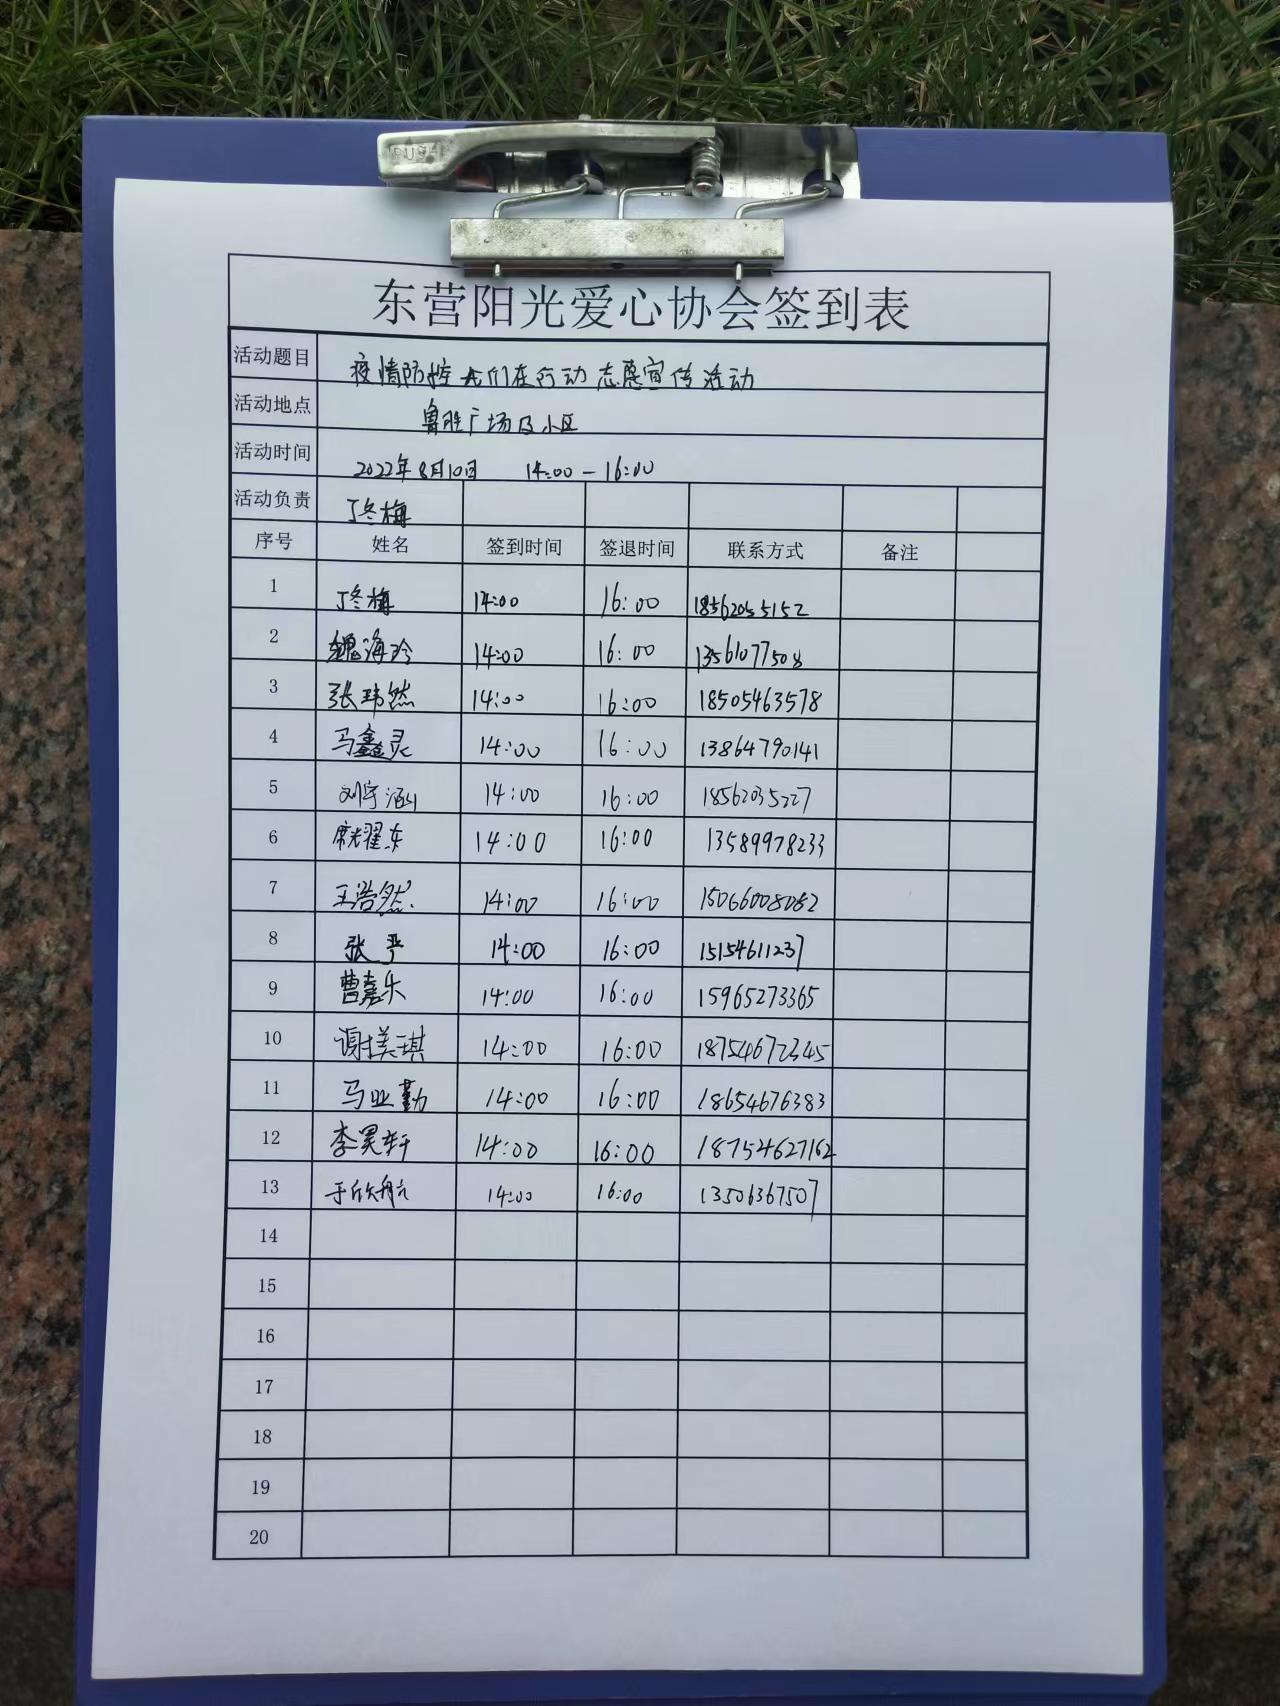 PUSH
东营阳光爱心协会签到表
活动题目 疫情防控 我们在行动 志愿宣传活动
活动地点 鲁胜广场及小区
活动时间 2022年8月10日 14:00-16:00
活动负责 丁冬梅
序号 姓名 签到时间 签退时间 联系方式 备注
1 丁冬梅 14:00 16:00 18562055152
2 魏海玲 14:00 16:00
3 张玮然 14:00 16:00 18505463578
4 马鑫灵 14:00 16:00 13864790141
5 刘宇涵 14:00 16:00 18562035227
6 席耀东 14:00 16:00 13589978233
7 王浩然 14:00 16:00 15066008082
8 张严 14:00 16:00 15154611237
9 曹嘉乐 14:00 16:00 15965273365
10 谢美琪 14:00 16:00 18754672345
11 马亚勤 14:00 16:00 18654676383
12 李昊轩 14:00 16:00 18754627162
13 于欣航 14:00 16:00 13506367507
14
15
16
17
18
19
20